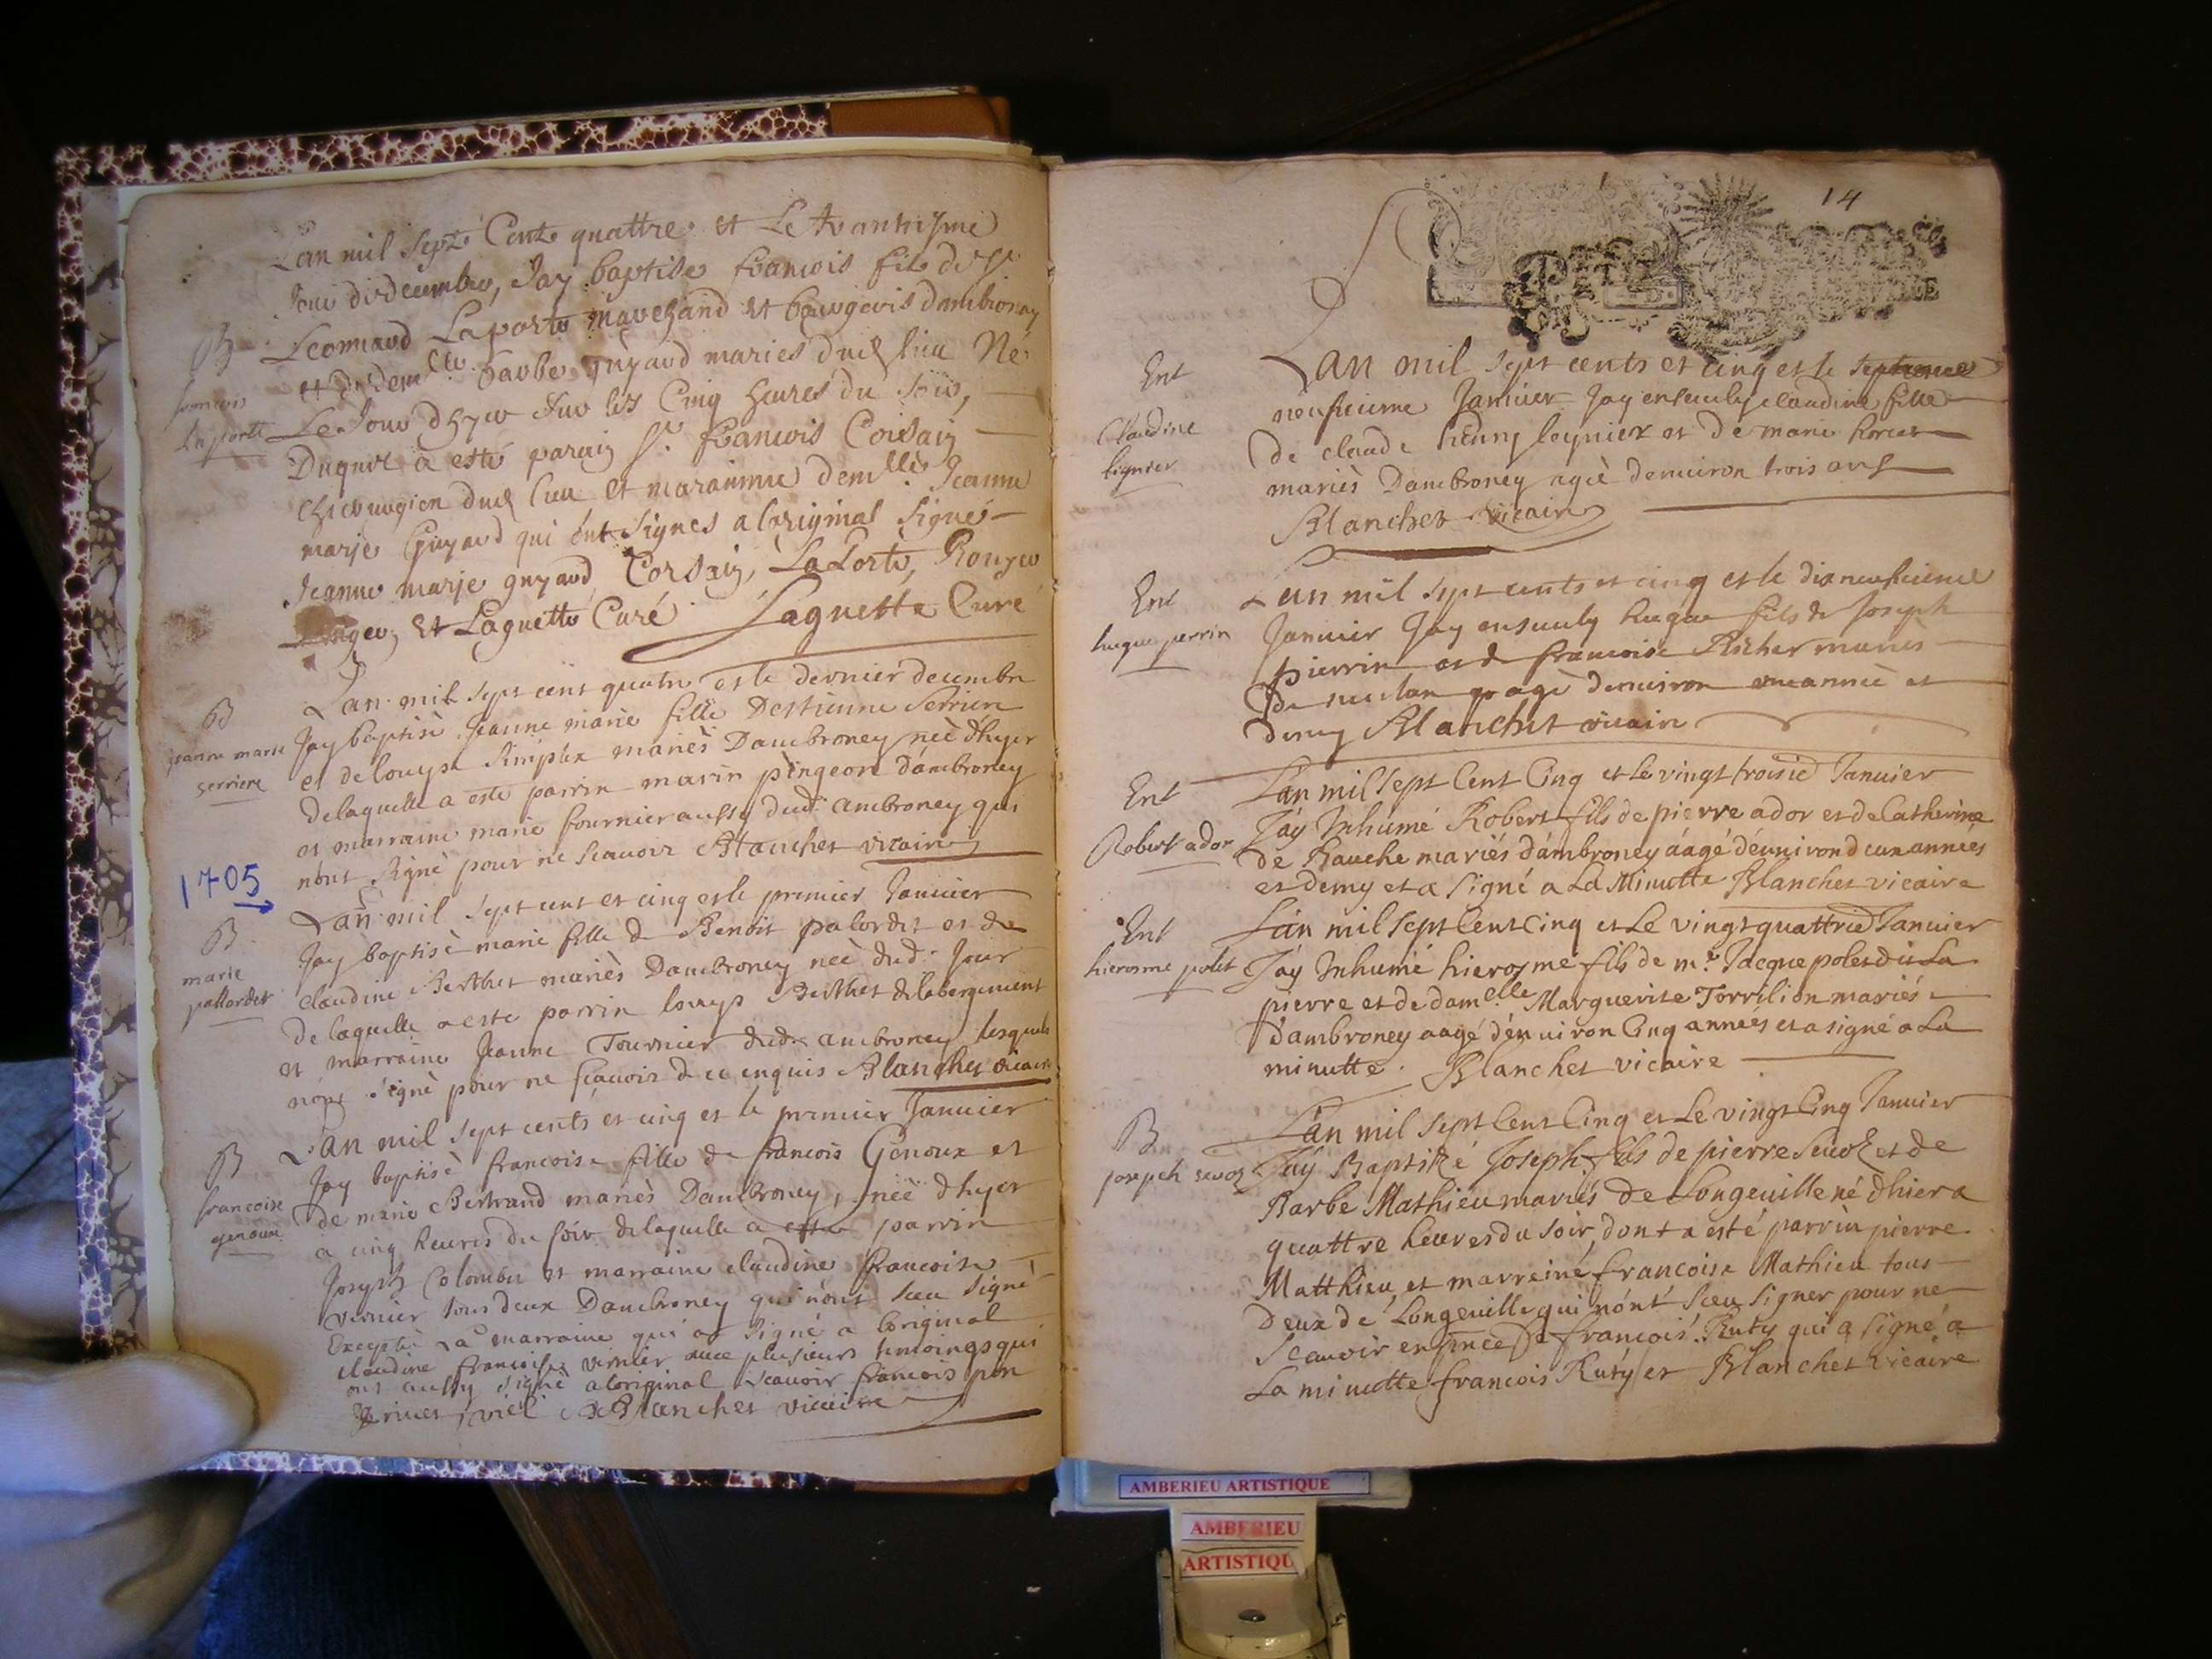 Lan mil sept Cents quattre et Le trantiesme
Jour de decembre, Jay baptise francois fils de Sr
Leonnard Laporte marchand et bourgeois dambronay
et de dem.lle barbe guyard maries dud lieu Né
Le Jour dhyer sur les Cinq heures du soir,
Duquel a esté parain Sr. francois Corsain
Chirurgien dud lieu et maranine demlle. Jeanne
marie Guyard qui ont signes a loriginal signés
Jeanne marje guyard Corsain, LaPorte, Rouyer
et Laguette Curé Laguette Curé
B
francois
Laporte
Lan mil sept cent quatre et le dernier decembre
Jay baptisé Jeanne marie fille Destienne Serriere
et de louyse Simplex mariés Dambroney neé dhyer
delaquelle a esté parrin marin pingeon dambroney
et marraine marie fournier aussy dud. ambroney qui
nónt signé pour ne scavoir Blanchet vicaire
B
jeanne marie
serriere
1705
Lan mil sept cent et cinq et le premier Januier
Jay baptisé marie fille de Benoit palordet et de
claudine Berthet mariés Dambroney neé dud. Jour
de laquelle a este parrin louys Berthet de labergement
et marraine Jeanne Tournier dud. ambroney lesquels
nont signé pour ne scavoir de ce enquis Blanchet vicaire
B
marie
pallordet
Lan mil sept cents et cinq et le premier Januier
Jay baptisé francoise fille de francois Genoux et
de marie Bertrand mariés Dambroney, neé dhyer
a cinq heures du soir delaquelle a esté parrin
Joseph Colombet et marraine claudine francoise
vernier tous deux Dambroney qui nónt sceu signé
Excepté La marraine qui a signé a loriginal
claudine francoise vernier auec plusieurs tmoings qui
ont aussy signé a loriginal scauoir francois
Blanchet vicaire
B
francoise
genoux
14
Lan mil sept cents et cinq et le septieme
neufuieme Januier Jay enseuely claudine fille
de claude henry leynier et de marie
mariés Dambroney ageé denuiron trois ans
Blanchet vicaire
Ent
Claudine
lignier
Lan mil sept cents et cinq et le dix neufuieme
Januier Jay enseuely hugue fils de Joseph
pierrin et de francoise Richer maries
agé denuiron une anneé et
demy Blanchet vicaire
Ent
hugue perrin
Lán mil sept Cent Cinq et Le vingt troisie Januier
Jáy Inhumé Robert fils de pierre ador et de Catherine
de Rauche mariés dámbroney áagé dénuiron deux anneés
et demy et a signé a La Minutte Blanchet vicaire
Ent
Robert ador
Lán mil sept Cent Cinq et Le vingt quattrie Januier
Jáy Inhumé hierosme fils de mr. Jacque polet dit La
pierre et de damelle Marguerite Torrilion mariés
dambroney aagé dénuiron Cinq anneés et a signé a La
minutte. Blanchet vicaire
Ent
hierosme polet
Lán mil sept Cent Cinq et Le vingt Cinq Januier
Jáy Baptizé Joseph fils de pierre Seuoz et de
Barbe Mathieu mariés de Longeuille né dhier a
quattre heures du soir, dont a esté parrin pierre
Matthieu, et marreiné francoise Mathieu tous
deux dé Longeuille qui nónt sceu signer pour ne
Scauoir en pnce de francois Ruty qui a signé a
La minutte francois Ruty et Blanchet vicaire
B
joseph seuoz
AMBERIEU ARTISTIQUE
AMBERIEU
ARTISTIQU